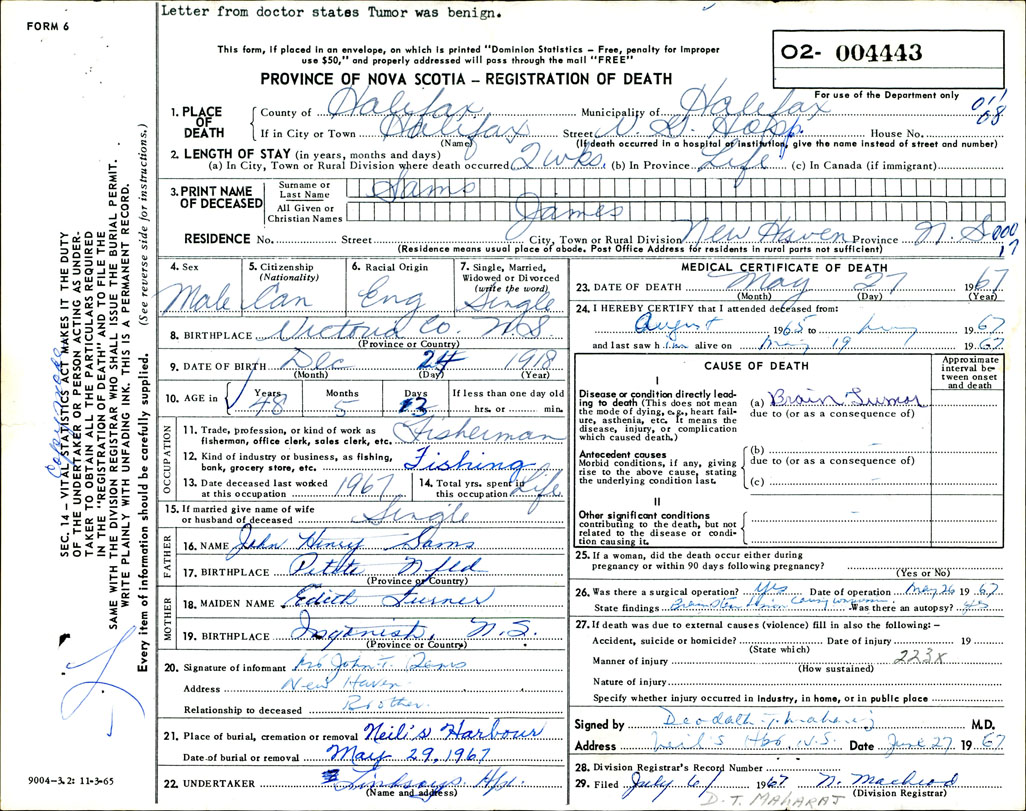 Letter from doctor states Tumor was benign.
FORM 6
This form, if placed in an envelope, on which is printed "Dominion Statistics – Free, penalty for improper
use $50," and properly addressed will pass through the mail "FREE"
PROVINCE OF NOVA SCOTIA – REGISTRATION OF DEATH
02- 004443
For use of the Department only
1. PLACE OF DEATH
County of Halifax Municipality of Halifax
If in City or Town Halifax Street V. G. Hosp. House No.
(Name) (If death occurred in a hospital or institution, give the name instead of street and number)
011
08
2. LENGTH OF STAY (in years, months and days)
(a) In City, Town or Rural Division where death occurred 2 wks. (b) In Province Life (c) In Canada (if immigrant)
3. PRINT NAME OF DECEASED
Surname or Last Name Sams
All Given or Christian Names James
RESIDENCE No. Street City, Town or Rural Division New Haven Province N. S. 000
17
(Residence means usual place of abode. Post Office Address for residents in rural parts not sufficient)
4. Sex Male
5. Citizenship (Nationality) Can
6. Racial Origin Eng
7. Single, Married, Widowed or Divorced (write the word) Single
8. BIRTHPLACE Victoria Co. N S
(Province or Country)
9. DATE OF BIRTH Dec 24 1918
(Month) (Day) (Year)
10. AGE in Years 48 Months 5 Days 13 If less than one day old hrs. or min.
OCCUPATION
11. Trade, profession, or kind of work as fisherman, office clerk, sales clerk, etc. Fisherman
12. Kind of industry or business, as fishing, bank, grocery store, etc. Fishing
13. Date deceased last worked at this occupation 1967
14. Total yrs. spent in this occupation Life
15. If married give name of wife or husband of deceased Single
FATHER
16. NAME John Henry Sams
17. BIRTHPLACE Petite Nfld
(Province or Country)
MOTHER
18. MAIDEN NAME Edith Turner
19. BIRTHPLACE Ingonish, N.S.
(Province or Country)
20. Signature of informant John T.
Address New Haven
Relationship to deceased Brother
21. Place of burial, cremation or removal Neil's Harbour
Date of burial or removal May 29, 1967
22. UNDERTAKER Lindsays Hfx.
(Name and address)
MEDICAL CERTIFICATE OF DEATH
23. DATE OF DEATH May 27 1967
(Month) (Day) (Year)
24. I HEREBY CERTIFY that I attended deceased from:
August 1965 to May 1967
and last saw him alive on May 19 1967
CAUSE OF DEATH
Approximate interval between onset and death
I
Disease or condition directly leading to death (This does not mean the mode of dying, e.g., heart failure, asthenia, etc. It means the disease, injury, or complication which caused death.)
(a) Brain Tumor
due to (or as a consequence of)
Antecedent causes
Morbid conditions, if any, giving rise to the above cause, stating the underlying condition last.
(b) –
due to (or as a consequence of)
(c) –
II
Other significant conditions
contributing to the death, but not related to the disease or condition causing it.
25. If a woman, did the death occur either during
pregnancy or within 90 days following pregnancy?
(Yes or No)
26. Was there a surgical operation? Yes Date of operation May 26 1967
State findings Was there an autopsy? yes
27. If death was due to external causes (violence) fill in also the following: –
Accident, suicide or homicide? Date of injury 19
(State which)
Manner of injury 223X
(How sustained)
Nature of injury
Specify whether injury occurred in industry, in home, or in public place
Signed by M.D.
Address Neil's Hbr, N.S. Date June 27 1967
28. Division Registrar's Record Number
29. Filed July 6 1967 N. Macleod
(Division Registrar)
D. T. MAHARAJ
SEC. 14 – VITAL STATISTICS ACT MAKES IT THE DUTY
OF THE UNDERTAKER OR PERSON ACTING AS UNDER-
TAKER TO OBTAIN ALL THE PARTICULARS REQUIRED
IN THE "REGISTRATION OF DEATH" AND TO FILE THE
SAME WITH THE DIVISION REGISTRAR WHO SHALL ISSUE THE BURIAL PERMIT.
WRITE PLAINLY WITH UNFADING INK. THIS IS A PERMANENT RECORD.
Every item of information should be carefully supplied. (See reverse side for instructions.)
9004-3.2: 11-3-65